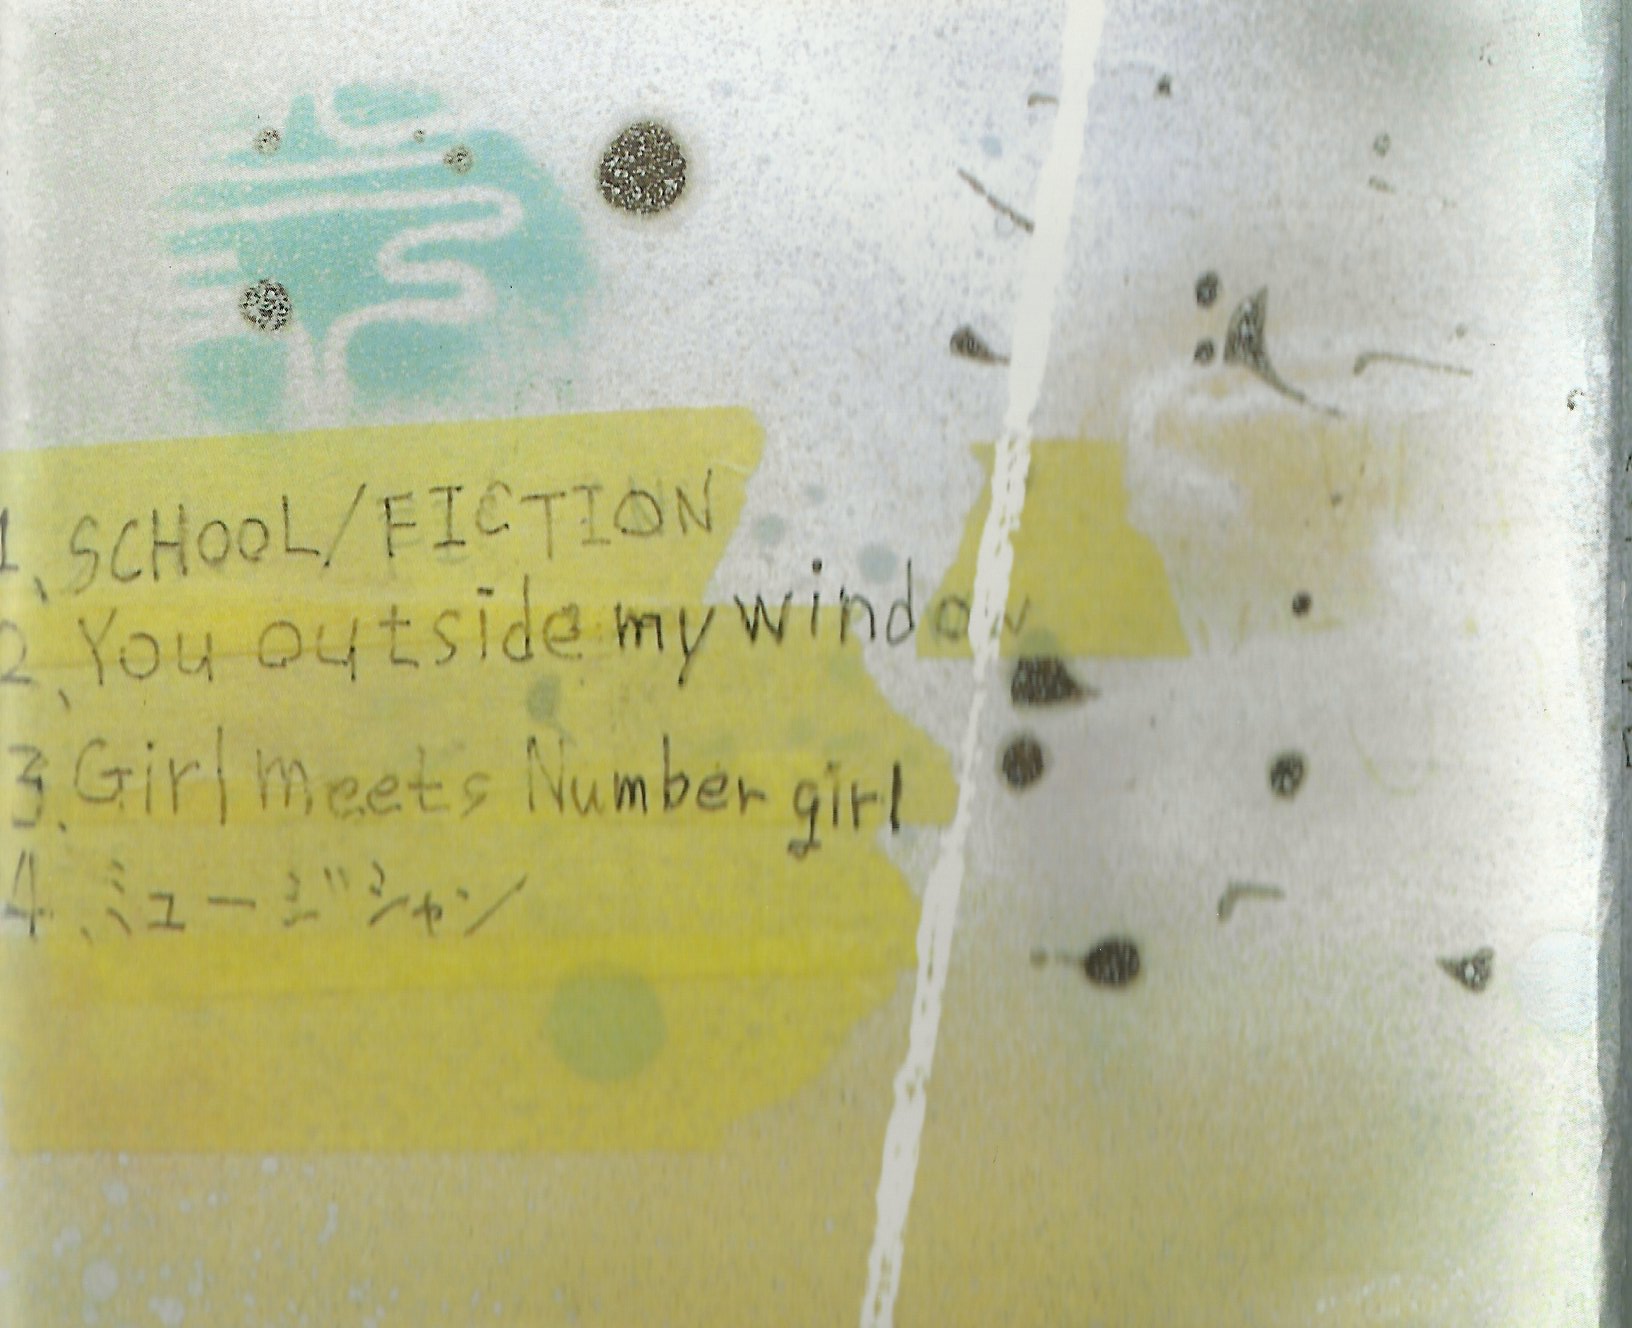 1. SCHOOL/FICTION
2. You outside my window
3. Girl meets Number girl
4. ミュージシャン